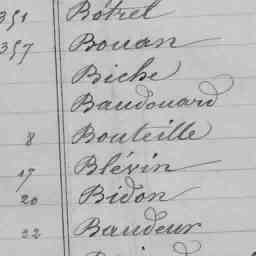 351 Botrel
357 Bouan
Biche
Baudouard
8 Bouteille
17 Blévin
20 Bidon
22 Baudeur